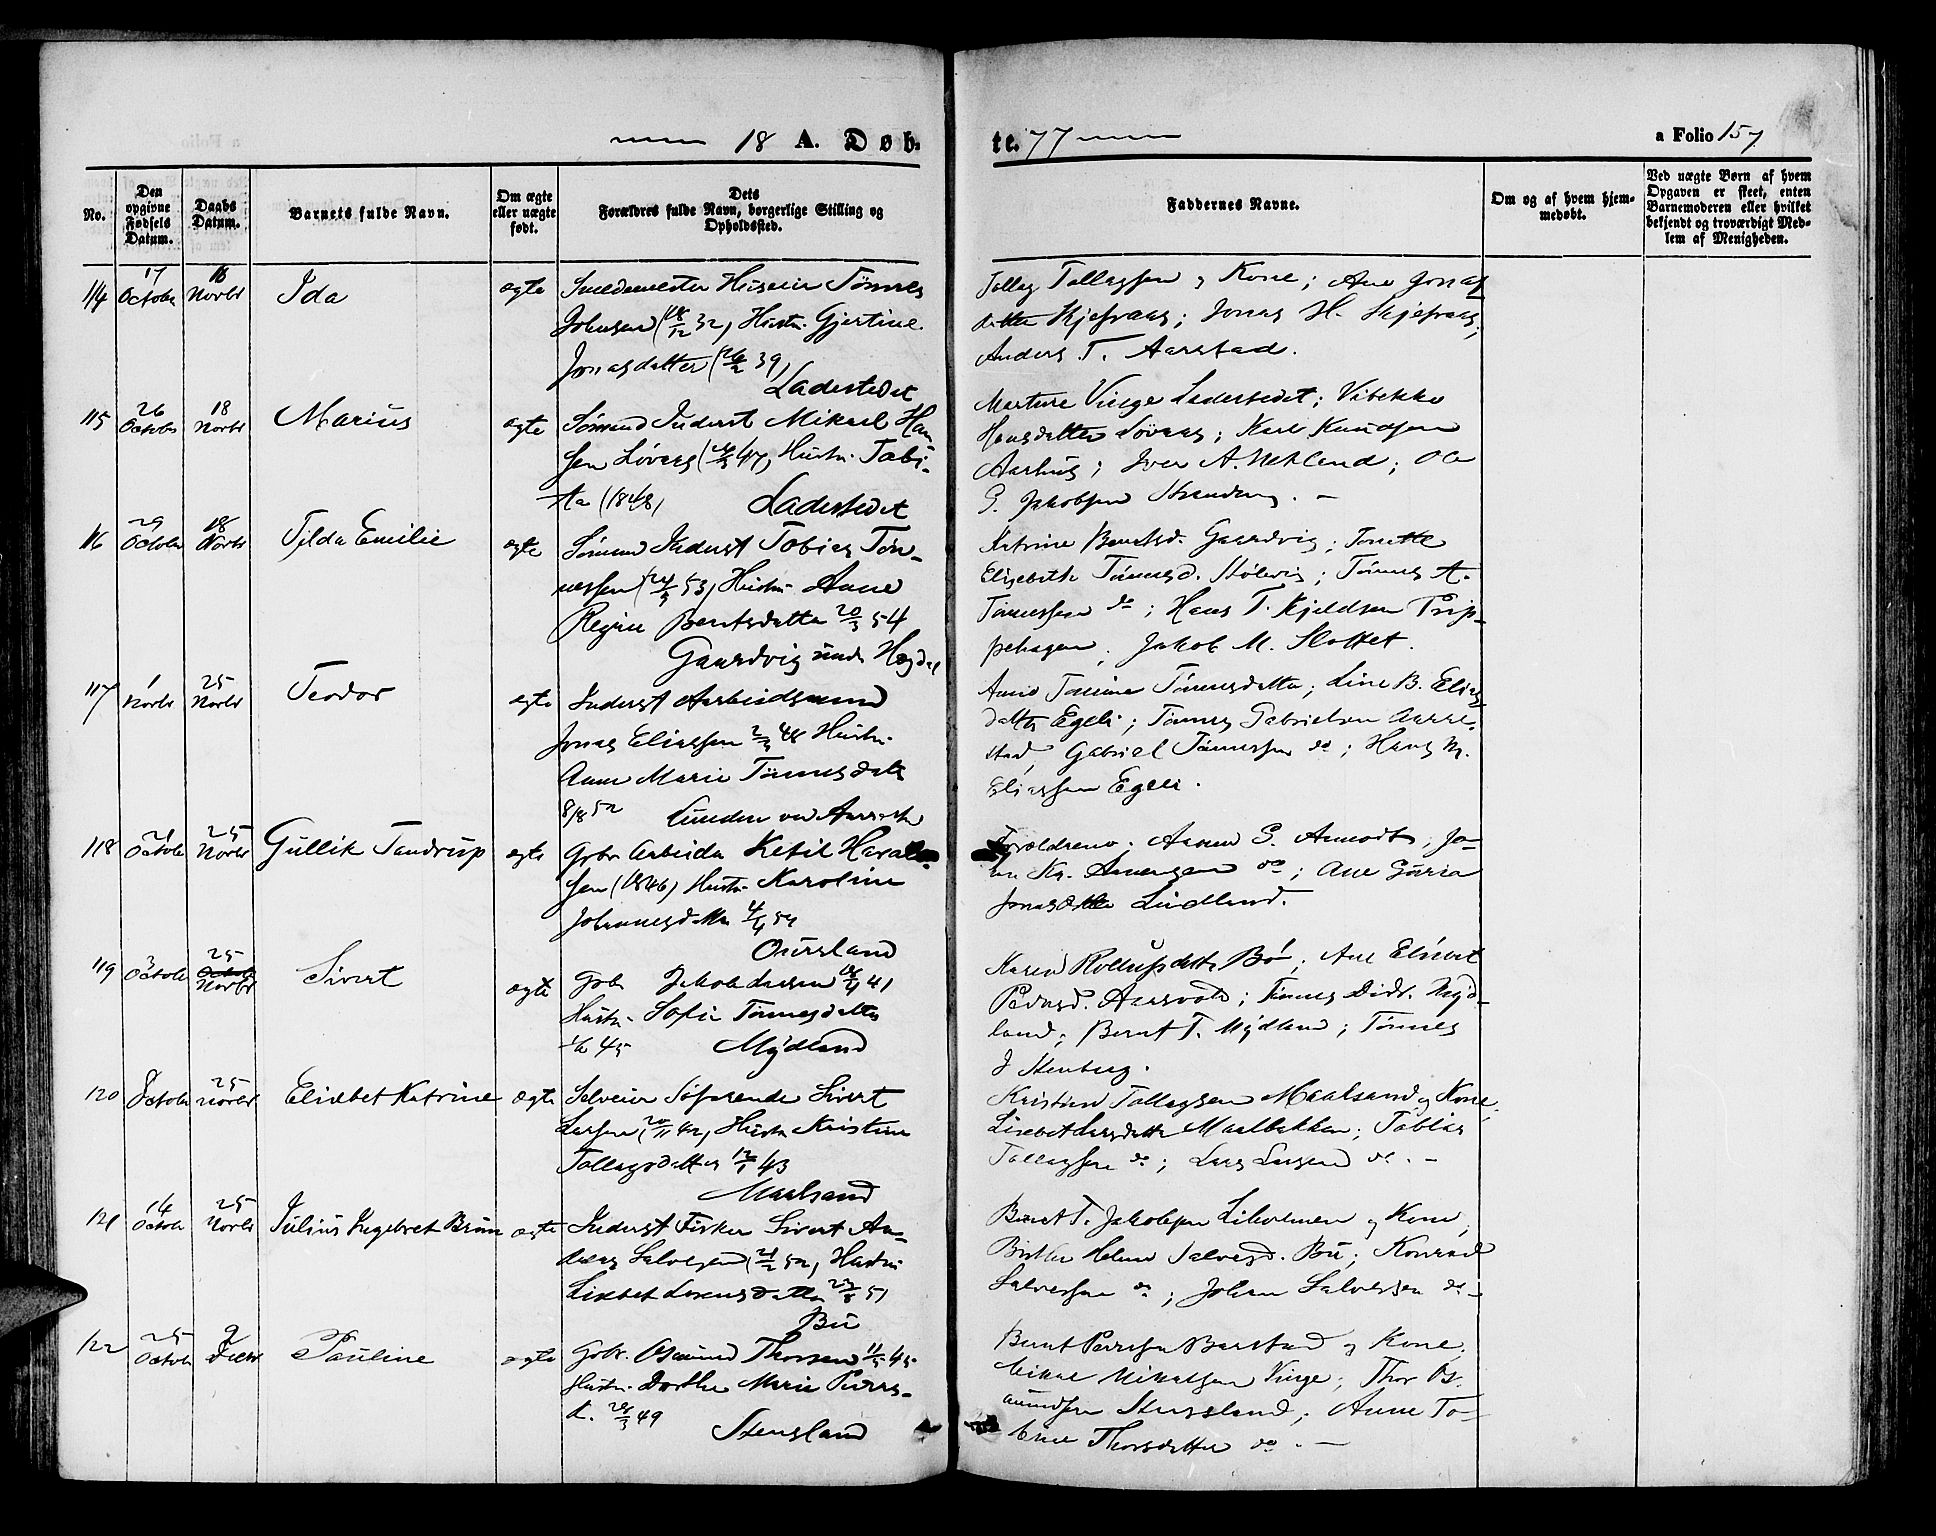 18 A. Døb-
te. 77
a Folio 157
No.
Den opgivne Fødsels Datum.
Daabs Datum.
Barnets fulde Navn.
Om ægte eller uægte født.
Dets Forældres fulde Navn, borgerlige Stilling og Opholdssted.
Faddernes Navne.
Om og af hvem hjemmedøbt.
Ved uægte Børn af hvem Opgaven er skeet, enten Barnemoderen eller hvilket bekjendt og troværdigt Medlem af Menigheden.
114 17 Octobr 18 Novbr Ida ægte Smedemester Huseier Tønnes
Johnsen (18/12 32) Hustr. Gjertine
Jonasdatter (26/2 39)
Ladestedet
Tollag Tollagsen & Kone; Ane Jonas
datter Skjefraas; Jonas H. Skjefraas;
Anders T. Aarstad.
115 26 Octobr 18 Novbr Marius ægte Sømand Inderst Mikael Han-
sen Løvaas 47) Hustr. Tobi-
ta (1848)
Ladestedet
Martine Vinge Ladestedet; Vibekke
Hansdatter Løvaas; Karl Knudsen
Aarhus; Iver A. Netland; Ole
G. Jakobsen
116 29 Octobr 18 Novbr Tilda Emilie ægte Sømand Inderst Tobias Tøn-
nessen 53) Hustr. Anne
Regine Berntsdatter 20/3 54
Gaardvig under Hegdal
Katrine Berntsd. Gaardvig; Tonette
Elisebeth Tønnesd. Stølevig; Tønnes A.
Tønnessen do; Hans T. Kjeldsen Trip-
pehagen; Jakob M. Slottet.
117 1 Novbr 25 Novbr Teodor ægte Inderst Arbeidsmand
Jonas Eliassen 48 Hustr.
Anne Marie Tønnesdatt
8/8 52 Lunden ved Aarrestad
Ane Tomine Tønnesdatter; Line B. Elias
datter Egeli; Tønnes Gabrielsen Aarre-
stad; Gabriel Tønnessen do; Hans M.
Eliassen Egeli.
118 21 Octobr 25 Novbr Gullik Tandrup ægte Grbr Arbeider Ketil Haral
sen (1846) Hustr. Karoline
Johannesdatter
Oursland
Forældrene; Aanen G. Aamodt; Jo-
Aanensen do; Ane Guria
Jonasdatter Lindland.
119 3 Octobr 25 Novbr Sivert ægte Gbr. Jakob Larsen 41
Hustr. Sofie Tønnesdatter
45 Mydland
Karen Rollufsdatter Bø; Ane Elisvet
Pedersd. Aarsvold; Tønnes Didr. Myd-
land; Bernt T. Mydland; Tønnes
J Stenberg.
120 8 Octobr 25 Novbr Elisebet Katrine ægte Selveier Søfarende Sivert
Larsen (20/11 42) Hustr Kristine
Tollagsdatter 12/1 43
Maalsand
Kristian Tollagsen Maalsand & Kone;
Lisebet Larsdatter Maalbakken; Tobias
Tollagsen do; Lars Larsen do. -
121 14 Octobr 25 Novbr Julius Ingebret Brun ægte Inderst Fisker Sivert An-
dreas Salvesen (21/2 52) Hustr
Lisebet Lorensdatter 51
Bu
Bernt T. Jakobsen Liholmen & Kone;
Birthe Helene Salvesd. Bu; Konrad
Salvessen do; Johan Salvessen do -
122 25 Octobr 2 Decbr Pauline ægte Gbr. Osmund Thorsen 11/5 45
Hustr. Dorthe Marie Peders-
d. 49
Stensland
Bernt Pedersen Barstad & Kone;
Mikal Mikalsen Vinge; Thor Os-
mundsen Stensland; Anne To-
line Thorsdatter do. -